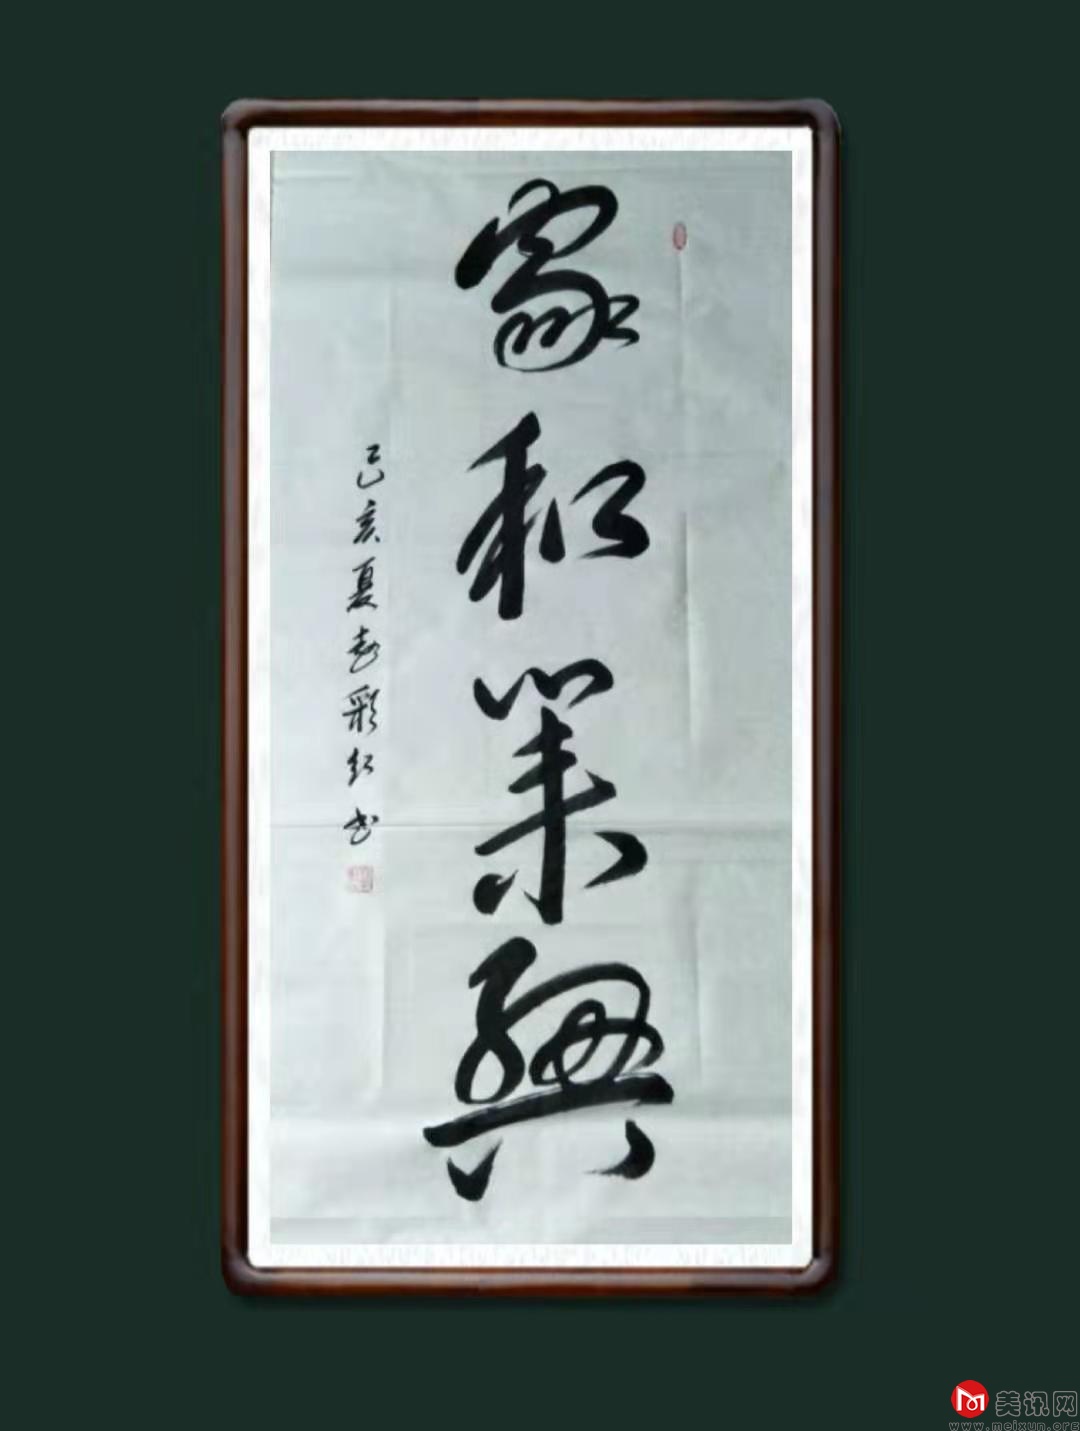 家和業興
己亥夏彭彩红书
美讯网
www.meixun.org